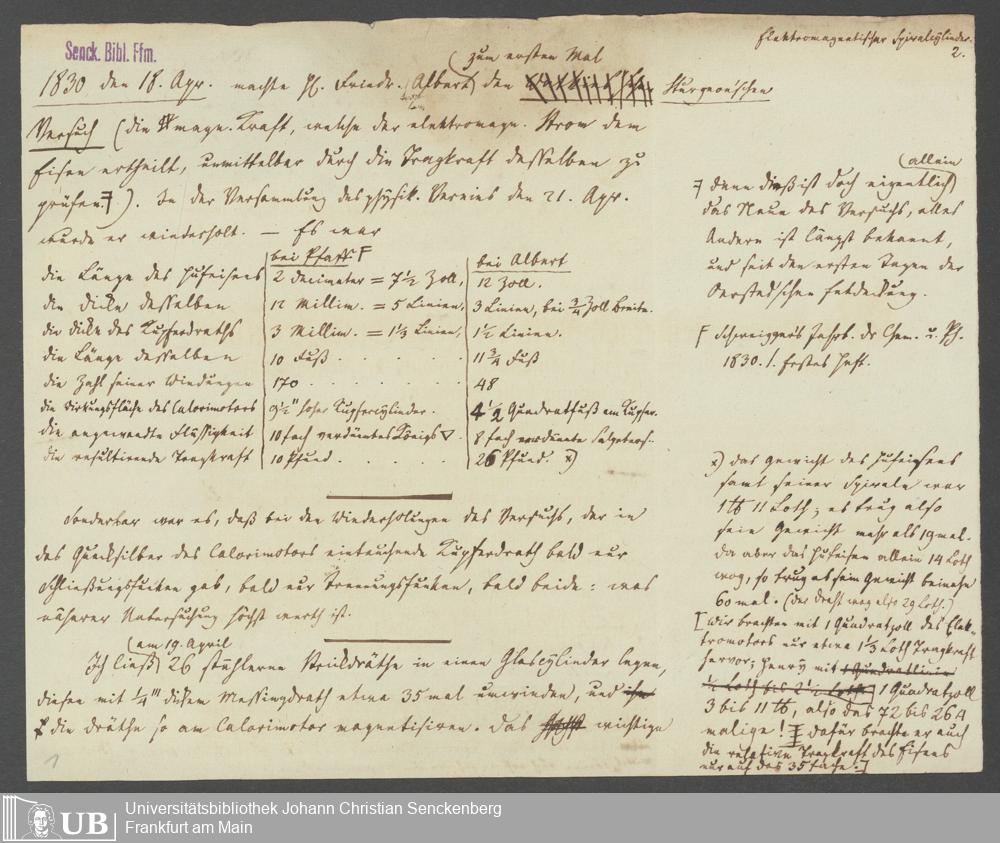 Elektromagnetischer Spiralcylinder.
2.
Senck. Bibl. Ffm.
zum ersten Mal
1830 den 18. Apr. machte H. Friedr. Albert den Sturgeon'schen
Versuch (die magn. Kraft, welche der elektromagn. Strom dem
Eisen ertheilt, unmittelbar durch die Tragkraft desselben zu
prüfen.). In der Versammlung des physik. Vereins den 21. Apr.
wurde er wiederholt. — Es war
bei Pfaff F bei Albert
die Länge des Hufeisens 2 Decimeter = 7 1/2 Zoll, 12 Zoll.
die Dicke desselben 12 Millim. = 5 Linien, 3 Linien, bei 3/4 Zoll Breite.
die Dicke des Kupferdraths 3 Millim. = 1 1/3 Linien, 1 1/2 Linien.
die Länge desselben 10 Fuß . . . . 11 3/4 Fuß
die Zahl seiner Windungen 170 . . . . . . 48
die Wirkungsfläche des Calorimotors 9 1/2" hoher Kupfercylinder. 4 1/2 Quadratfuß am Kupfer.
die angewandte Flüssigkeit 10fach verdünntes Königs ▽. 8 fach verdünnte Salpeters.
die resultirende Tragkraft 10 Pfund . . . . . 26 Pfund. x)
Sonderbar war es, daß bei den Wiederholungen des Versuchs, der in
das Quecksilber des Calorimotors eintauchende Kupferdrath bald nur
Schließungsfunken gab, bald nur Trennungsfunken, bald beide: was
näherer Untersuchung höchst werth ist.
am 19. April
Ich ließ 26 stählerne Strickdräthe in einen Glascylinder legen,
diesen mit 1/4''' dickem Messingdrath etwa 35 mal umwinden, und
die Dräthe so am Calorimotor magnetisiren. Das wichtige
1
allein
denn dieß ist doch eigentlich
das Neue des Versuchs, alles
Andere ist längst bekannt,
und seit den ersten Tagen der
Oerstedschen Entdeckung.
F Schweigger's Jahrb. dr Chem. u. Ph.
1830. 1. Erstes Heft.
x) das Gewicht des Hufeisens
samt seiner Spirale war
1 ℔ 11 Loth; es trug also
sein Gewicht mehr als 19 mal.
Da aber das Hufeisen allein 14 Loth
wog, so trug es sein Gewicht beinahe
60 mal. (der Draht wog also 29 Loth.)
[Wir brachten mit 1 Quadratzoll des Elek-
tromotors nur etwa 1 1/3 Loth Tragkraft
hervor; Henry mit 1 Quadratlinie
1/2 Loth bis 2 1/2 Loth, 1 Quadratzoll
3 bis 11 ℔, also das 72 bis 264
malige! dafür brachte er auch
die relative Tragkraft des Eisens
nur auf das 35fache.]
UB
Universitätsbibliothek Johann Christian Senckenberg
Frankfurt am Main